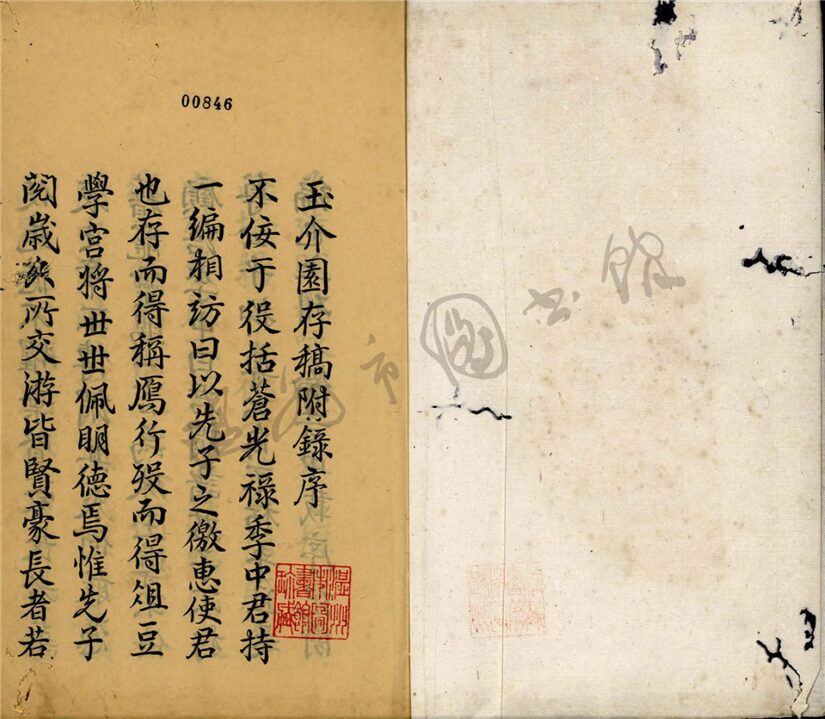 00846
玉介園存稿附錄序
不佞于役括蒼光祿季中君持
一編相訪曰以先子之徼惠使君
也存而得稱鴈行歿而得俎豆
學宮將丗丗佩明德焉惟先子
閱歲所交游皆賢豪長者若
溫州市圖書館珍藏
市圖書館